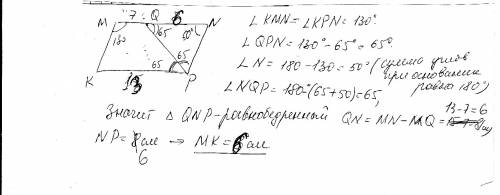 M 7 Q 6 N
130 65 50°
65 65
K 13 P
∠KMN = ∠KPN = 130°
∠QPN = 130° - 65° = 65°
∠N = 180 - 130 = 50° (сумма углов
при основании
равна 180°)
∠NQP = 180° - (65 + 50) = 65,
Значит △ QNP - равнобедренный QN = MN - MQ = 13 - 7 = 6
NP = 6 см → MK = 6 см